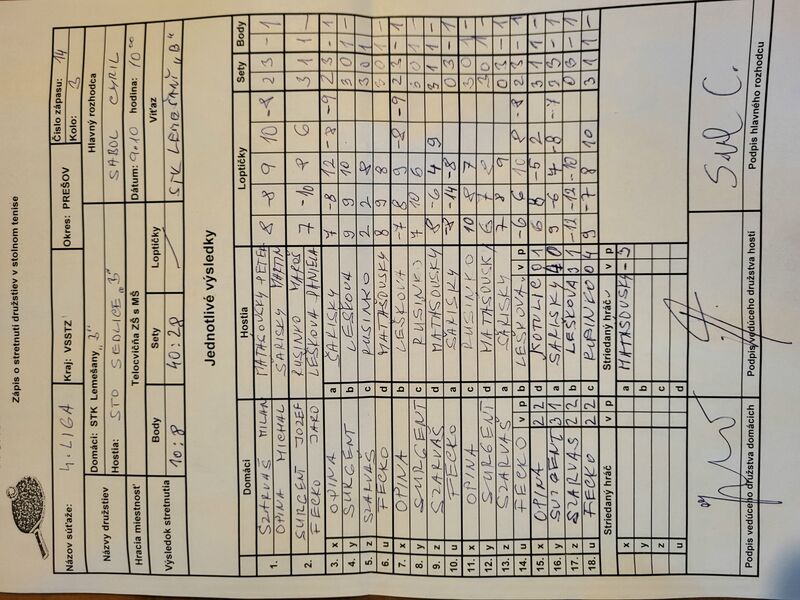 Zápis o stretnutí družstiev v stolnom tenise
Názov súťaže: 4. LIGA Kraj: VSSTZ Okres: PREŠOV Číslo zápasu: 14
Kolo: 3
Názvy družstiev Domáci: STK Lemešany "B" Hlavný rozhodca
Hostia: STO SEDLICE "B" SABOL CYRIL
Hracia miestnosť Telocvičňa ZŠ s MŠ Dátum: 9.10 hodina: 10⁰⁰
Výsledok stretnutia Body Sety Loptičky Víťaz
10:8 40:28 STK LEMEŠANY "B"
Jednotlivé výsledky
Domáci Hostia Loptičky Sety Body
1. SZARVAŠ MILAN MATASOVSKY PETER 8 -8 9 10 -8 2 3 - 1
OPINA MICHAL SARISKY MARTIN
2. SURGENT JOZEF RUSINKO MAROŠ 7 -10 8 6 3 1 1 -
FECKO JARO LEŠKOVA DANIELA
3. x OPINA a ŠARISKY 7 -8 12 -8 -9 2 3 - 1
4. y SURGENT b LEŠKOVA 9 9 10 3 0 1 -
5. z SZARVAŠ c RUSINKO 2 2 8 3 0 1
6. u FECKO d MATASOVSKY 8 9 8 3 0 1 -
7. x OPINA b LEŠKOVA -7 8 9 -8 -9 2 3 - 1
8. y SURGENT c RUSINKO 7 10 6 3 0 1 -
9. z SZARVAŠ d MATASOVSKY 8 -6 4 9 3 1 1 -
10. u FECKO a ŠARISKY -8 -14 -8 0 3 - 1
11. x OPINA c RUSINKO 10 8 7 3 0 1
12. y SURGENT d MATASOVSKY 6 7 3 0 1 -
13. z SZARVAŠ a SARISKY 7 8 9 0 3 - 1
14. u FECKO v p b LEŠKOVA v p -6 6 10 8 -8 2 3 - 1
15. x OPINA 2 2 d KOTULIC 0 1 6 8 -5 2 3 1 1 -
16. y SURGENT 3 1 a SARISKY 4 0 9 -6 7 -8 -7 2 3 - 1
17. z SZARVAS 2 2 b LEŠKOVA 3 1 -12 -12 -10 0 3 - 1
18. u FECKO 2 2 c RUSINKO 0 4 9 -7 8 10 3 1 1 -
Striedaný hráč v p Striedaný hráč v p
x a MATASOVSKY - 3
y b
z c
u d
Podpis vedúceho družstva domácich Podpis vedúceho družstva hostí Podpis hlavného rozhodcu